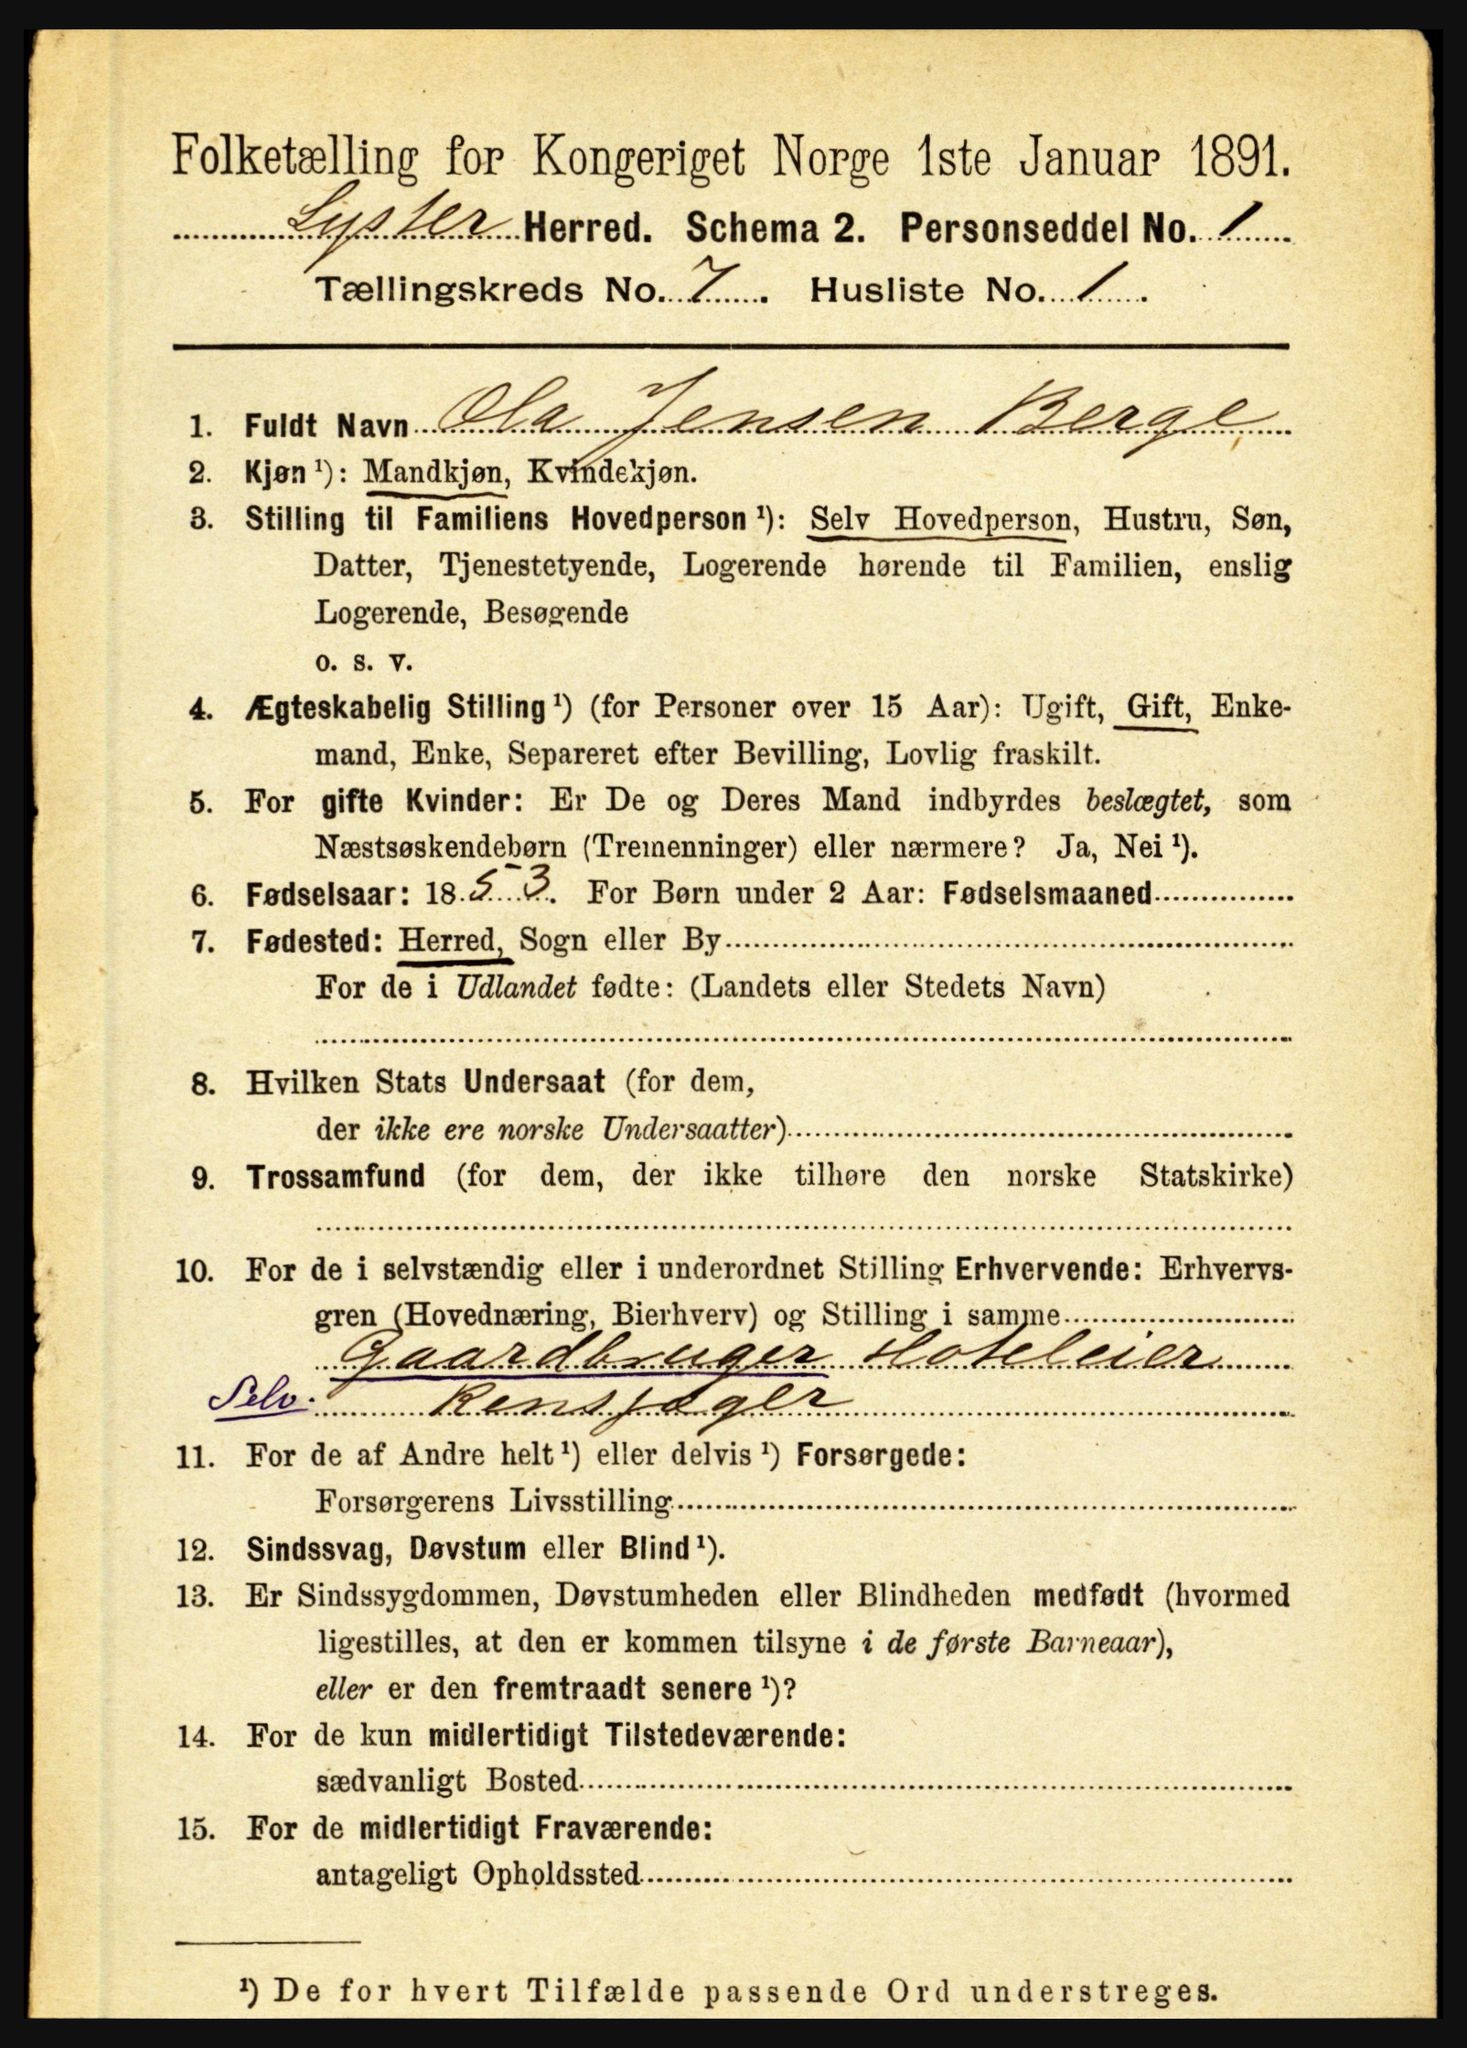 Folketælling for Kongeriget Norge 1ste Januar 1891.
Lyster Herred. Schema 2. Personseddel No. 1
Tællingskreds No. 7. Husliste No. 1.
1. Fuldt Navn Ola Jensen Berge
2. Kjøn ¹): Mandkjøn, Kvindekjøn.
3. Stilling til Familiens Hovedperson ¹): Selv Hovedperson, Hustru, Søn,
Datter, Tjenestetyende, Logerende hørende til Familien, enslig
Logerende, Besøgende
o. s. v.
4. Ægteskabelig Stilling ¹) (for Personer over 15 Aar): Ugift, Gift, Enke-
mand, Enke, Separeret efter Bevilling, Lovlig fraskilt.
5. For gifte Kvinder: Er De og Deres Mand indbyrdes beslægtet, som
Næstsøskendebørn (Tremenninger) eller nærmere? Ja, Nei ¹).
6. Fødselsaar: 1853. For Børn under 2 Aar: Fødselsmaaned
7. Fødested: Herred, Sogn eller By
For de i Udlandet fødte: (Landets eller Stedets Navn)
8. Hvilken Stats Undersaat (for dem,
der ikke ere norske Undersaatter)
9. Trossamfund (for dem, der ikke tilhøre den norske Statskirke)
10. For de i selvstændig eller i underordnet Stilling Erhvervende: Erhvervs-
gren (Hovednæring, Bierhverv) og Stilling i samme
Gaardbruger Hoteleier
Selv. Rensjæger
11. For de af Andre helt ¹) eller delvis ¹) Forsørgede:
Forsørgerens Livsstilling
12. Sindssvag, Døvstum eller Blind ¹).
13. Er Sindssygdommen, Døvstumheden eller Blindheden medfødt (hvormed
ligestilles, at den er kommen tilsyne i de første Barneaar),
eller er den fremtraadt senere ¹)?
14. For de kun midlertidigt Tilstedeværende:
sædvanligt Bosted
15. For de midlertidigt Fraværende:
antageligt Opholdssted
¹) De for hvert Tilfælde passende Ord understreges.